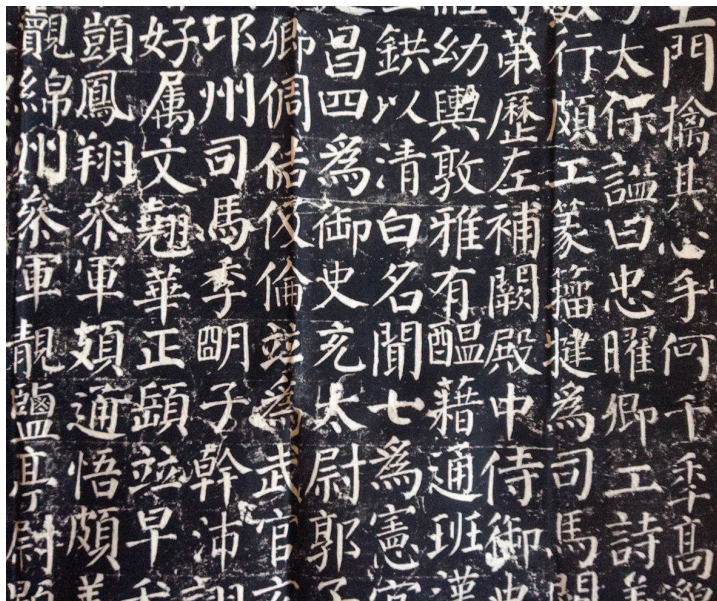 土門擒其心手何千秊高邈
太保謚曰忠曜卿工詩善
行頗工篆籀揵為司馬
第歷左補闕殿中侍御史
幼輿敦雅有醖藉通班漢
鉷以清白名聞七為憲官
昌四為御史充太尉郭子
卿倜佶伋倫竝為武官玄
邛州司馬季明子幹沛詡
好属文翹華正頣竝早
顗鳳翔叅軍頍通悟頗善
覿綿州叅軍靚鹽亭尉顥